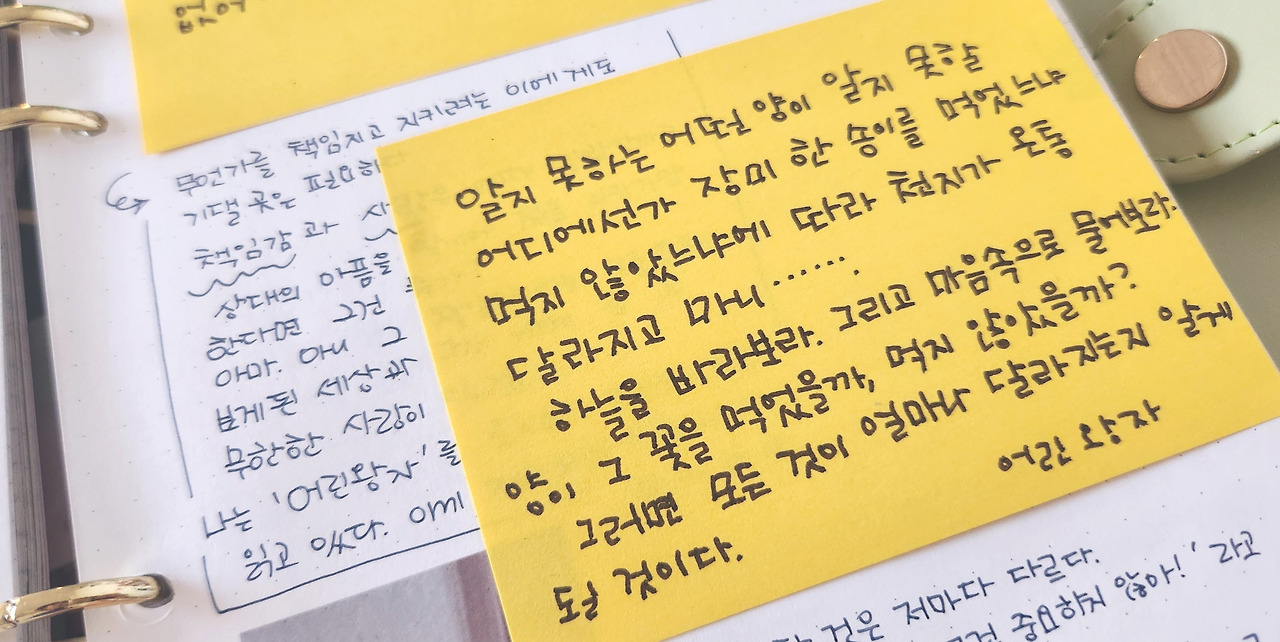 없어
무언가를 책임지고 지키려는 이에게도
기댈 곳은 필요하
책임감과 사
상대의 아픔을
한다면 그건
아마. 아니 그
보게 된 세상과
무한한 사랑이
나는 '어린왕자'를
읽고 있다. 이미
알지 못하는 어떤 양이 알지 못할
어디에선가 장미 한 송이를 먹었느냐
먹지 않았느냐에 따라 천지가 온통
달라지고 마니.......
하늘을 바라보라. 그리고 마음속으로 물어보라:
양이 그 꽃을 먹었을까, 먹지 않았을까?
그러면 모든 것이 얼마나 달라지는지 알게
될 것이다.
어린 왕자
것은 저마다 다르다.
중요하지 않아!' 라고